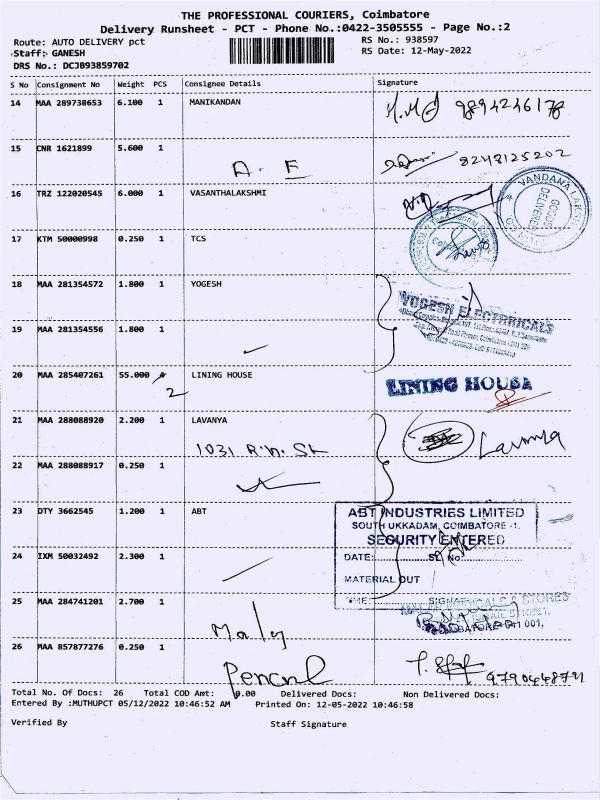 THE PROFESSIONAL COURIERS, Coimbatore
Delivery Runsheet - PCT - Phone No.:0422-3505555 - Page No.:2
Route: AUTO DELIVERY pct
RS No.: 938597
Staff: GANESH
RS Date: 12-May-2022
DRS No.: DCJB93859702
S No Consignment No Weight PCS Consignee Details Signature
14 MAA 289738653 6.100 1 MANIKANDAN 9894246178
15 CNR 1621899 5.600 1 8248125202
A. E
16 TRZ 122020545 6.000 1 VASANTHALAKSHMI
VANDANA
GOODS DELIVERED
17 KTM 50000998 0.250 1 TCS
18 MAA 281354572 1.800 1 YOGESH
YOGESH ELECTRICALS
19 MAA 281354556 1.800 1
20 MAA 285407261 55.000 LINING HOUSE LINING HOUSE
2
21 MAA 288088920 2.200 1 LAVANYA Lavanya
1031 R.N. St
22 MAA 288088917 0.250 1
23 DTY 3662545 1.200 1 ABT
ABT INDUSTRIES LIMITED
SOUTH UKKADAM, COIMBATORE -1.
SECURITY ENTERED
DATE: SL No.
24 IXM 50032492 2.300 1
MATERIAL OUT
TIME: SIGNATURE
25 MAA 284741201 2.700 1
& STORES
Maly
26 MAA 857877276 0.250 1 9790448791
Total No. Of Docs: 26 Total COD Amt: 0.00 Delivered Docs: Non Delivered Docs:
Entered By :MUTHUPCT 05/12/2022 10:46:52 AM Printed On: 12-05-2022 10:46:58
Verified By Staff Signature